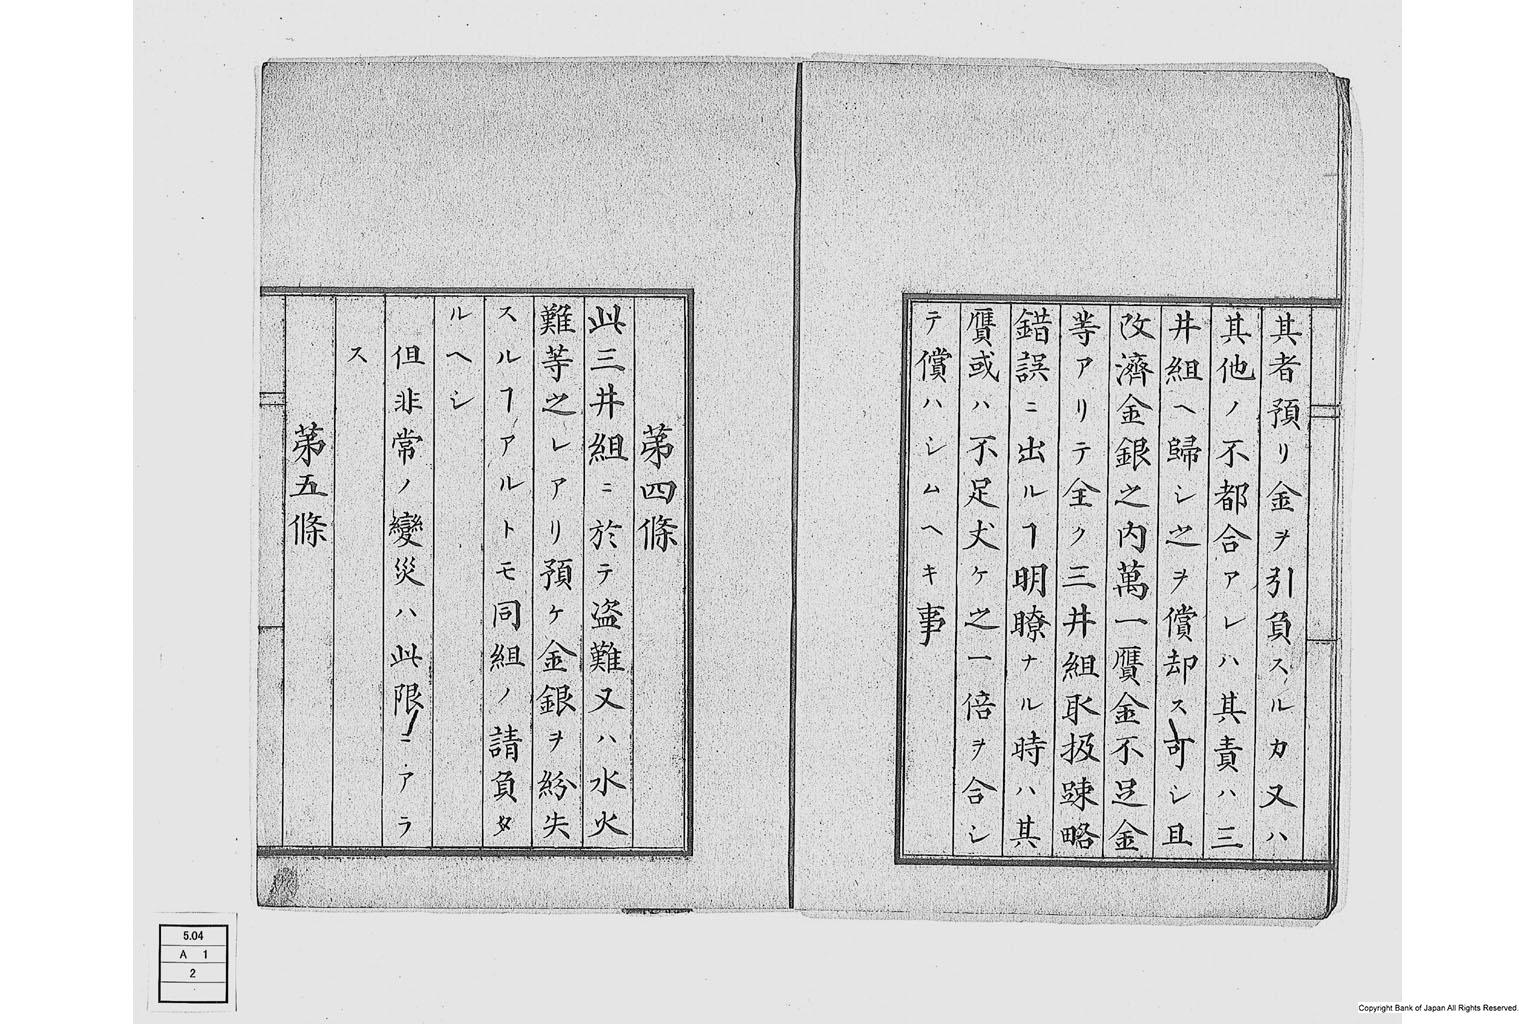 其者預リ金ヲ引負スルカ又ハ
其他ノ不都合アレハ其責ハ三
井組ヘ歸シ之ヲ償却ス可シ且
改濟金銀之内萬一贋金不足金
等アリテ全ク三井組取扱踈略
錯誤ニ出ルヿ明瞭ナル時ハ其
贋或ハ不足丈ケ之一倍ヲ合シ
テ償ハシムヘキ事
苐四條
此三井組ニ於テ盗難又ハ水火
難等之レアリ預ケ金銀ヲ紛失
スルヿアルトモ同組ノ請負タ
ルヘシ
但非常ノ變災ハ此限ニアラ
ス
苐五條
5.04
A 1
2
Copyright Bank of Japan All Rights Reserved.